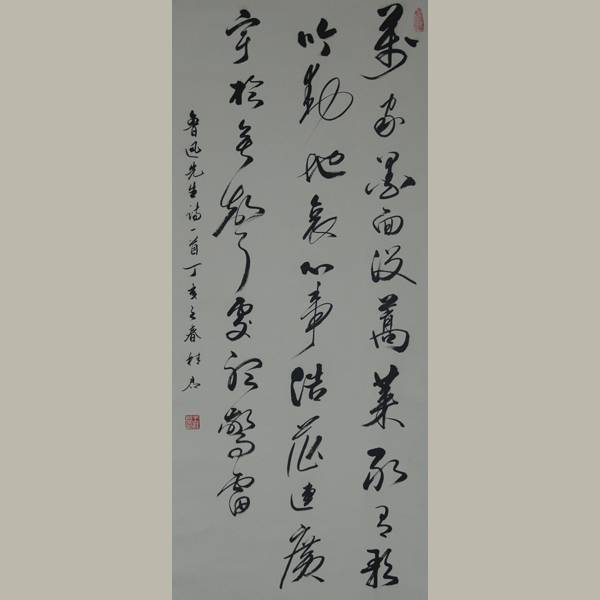 萬家墨面没蒿萊敢有歌
吟動地哀心事浩茫連廣
宇於無聲處聽驚雷
魯迅先生詩一首丁亥之春